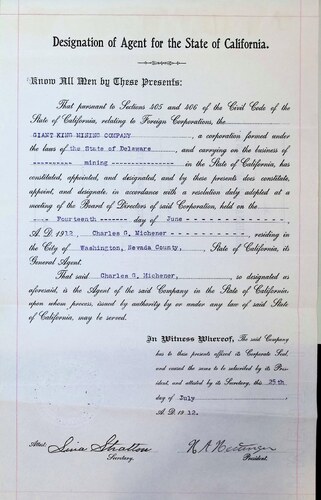 Designation of Agent for the State of California.
Know All Men by These Presents:
That pursuant to Sections 405 and 406 of the Civil Code of the
State of California, relating to Foreign Corporations, the
GIANT KING MINING COMPANY, a corporation formed under
the laws of the State of Delaware, and carrying on the business of
---------- mining ---------------- in the State of California, has
constituted, appointed, and designated, and by these presents does constitute,
appoint, and designate, in accordance with a resolution duly adopted at a
meeting of the Board of Directors of said Corporation, held on the
---- Fourteenth ------- day of June - - - - - - - - - - - - - -
A. D. 1912, Charles G. Michener - - - - - - - - - -, residing in
the City of Washington, Nevada County, State of California, its
General Agent.
That said Charles G. Michener, so designated as
aforesaid, is the Agent of the said Company in the State of California,
upon whom process, issued by authority by or under any law of said State
of California, may be served.
In Witness Whereof, The said Company
has to these presents affixed its Corporate Seal,
and caused the same to be subscribed by its Pres-
ident, and attested by its Secretary, this 25th
day of July,
A. D. 1912.
Attest: Sina Stratton
Secretary.
President.